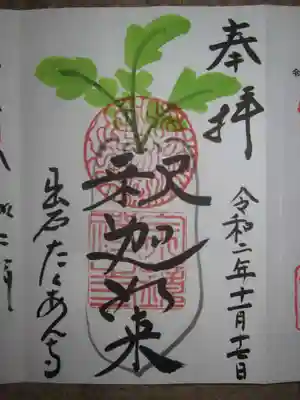 奉拝
令和二年十一月十七日
釈迦如来
出石たくあん寺